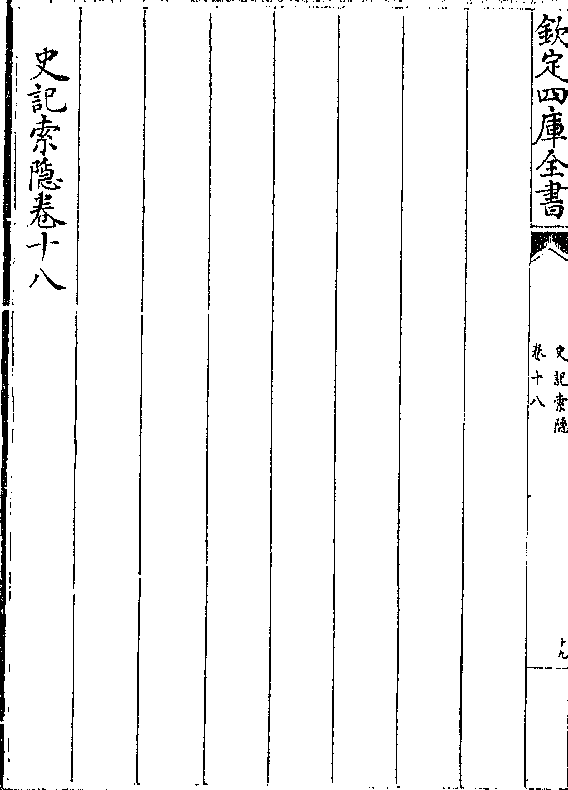 欽定四庫全書
史記索隱
卷十八
十九
史記索隱卷十八